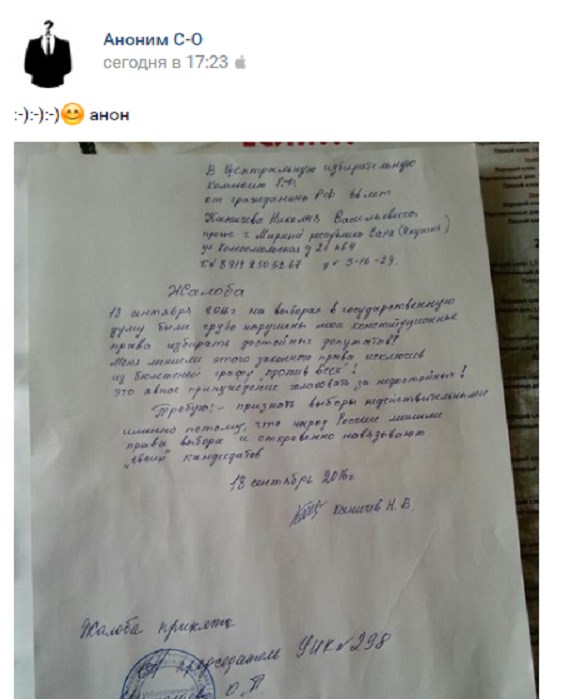 Аноним С-О
сегодня в 17:23
:-):-):-)😊 анон
В Центральную избирательную
комиссию Р.Ф.
от гражданина РФ 66 лет
Николая Васильевича,
г. Мирный республика Саха (Якутия)
ул Комсомольская д
Жалоба
18 сентября 2016г на выборах в государственную
думу были грубо нарушены мои конституционные
права избирать достойных депутатов!
Меня лишили этого законного права исключив
из бюлетеней графу "против всех"!
это явное принуждение голосовать за недостойных!
Требую: - признать выборы недействительными
именно потому, что народ России лишили
права выбора и откровенно навязывают
"своих" кандидатов
18 сентябрь 2016г
Н. В.
Жалоба принята
председатель УИК №298
О. П.